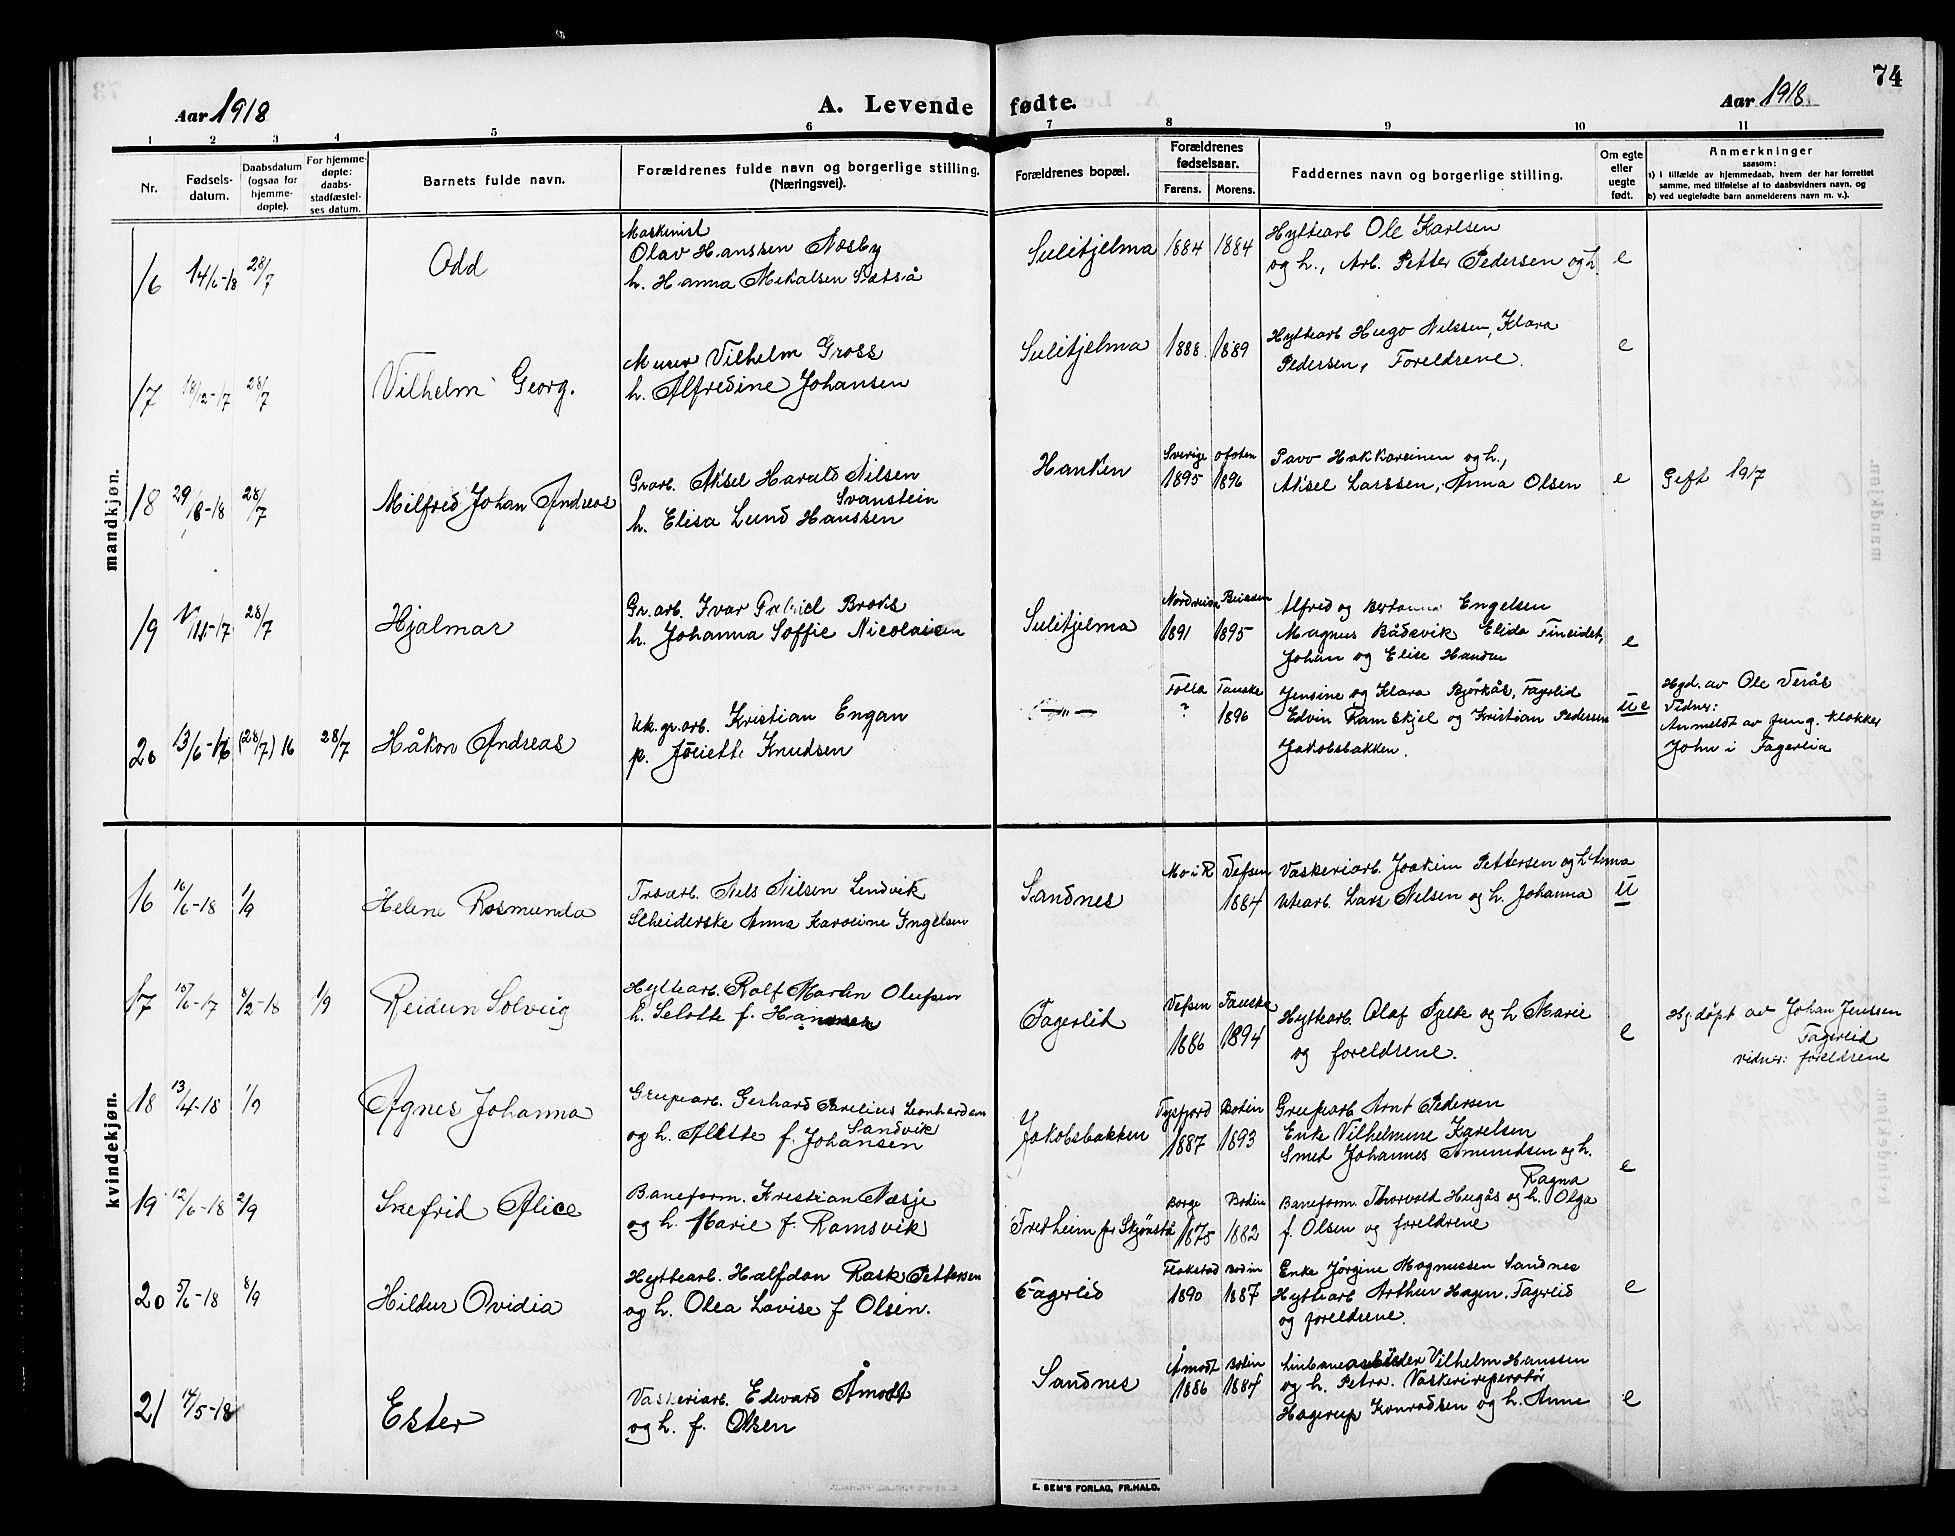 74
Aar 1918
A. Levende fødte.
Aar 1918
1 2 3 4 5 6 7 8 9 10 11
Nr.
Fødsels-
datum.
Daabsdatum
(ogsaa for
hjemme-
døpte).
For hjemme-
døpte:
daabs-
stadfæstel-
ses datum.
Barnets fulde navn.
Forældrenes fulde navn og borgerlige stilling.
(Næringsvei).
Forældrenes bopæl.
Forældrenes
fødselsaar.
Farens. Morens.
Faddernes navn og borgerlige stilling.
Om egte
eller
uegte
født.
Anmerkninger
saasom:
a) i tilfælde av hjemmedaab, hvem der har forrettet
samme, med tilføielse af to daabsvidners navn, og
b) ved uegtefødte barn anmelderens navn m. v.).
mandkjøn.
16 14/6-18 28/7 Odd
Maskinist
Olav Hanssen Næsby
h. Hanna Mikalsen Sætså
Sulitjelma 1884 1884
Hyttearb Ole Karlsen
og h., Arb. Petter Pedersen og h.
e
17 18/12-17 28/7 Vilhelm Georg.
Murer Vilhelm Gross
h. Alfredine Johansen
Sulitjelma 1888 1889
Hyttearb Hugo Nilssen, Klara
Pedersen, Foreldrene.
e
18 29/6-18 28/7 Milfred Johan Andreas
Gr.arb. Aksel Harald Nilsen
Svanstein
h. Elisa Lund Hanssen
Hanken Sverige 1895 Ofoten 1896
Pavo Hakkareinen og h.,
Aksel Larssen, Anna Olsen
e Gift 1917
19 /11-17 28/7 Hjalmar
Gr.arb. Ivar Gabriel Broks
h. Johanna Soffie Nicolaisen
Sulitjelma 1891 1895
Alfred og Bertanna Engelsen
Magnus Bådsvik Elida Fineidet,
Johan og Elise
e
20 13/6-16 (28/7) 16 28/7 Håkon Andreas
Uk.gr.arb. Kristian Engan
p. Knudsen
— " —
Folla ? Fauske 1896
Jensine og Klara Bjørkås, Fagerlid
Edvin Ramskjel og Kristian Pedersen
Jakobsbakken.
ue
Hgd. av Ole Verås
Vidner:
Anmeldt av gung. klokker
John i Fagerlia
kvindekjøn.
16 16/6-18 1/9 Helene Rosmunda
Nels Nilsen Lendvik
Scheiderske Anna Karoline Ingelsen
Sandnes Mo i R Vefsen 1884
Vaskeriarb. Joakim Pettersen og h Anna
Utearb. Lars Nilsen og h. Johanna
u
17 10/6-17 8/2-18 1/9 Reidun Solveig
Hyttearb. Rolf Martin Olufsen
h. Selotte f. Hansen
Fagerlid Vefsen 1886 Fauske 1894
Hyttearb. Olaf Tjelte og h Marie
og foreldrene.
e
Hj. døpt av Johan Jenssen
Fagerlid
vidner: foreldrene
18 13/4-18 1/9 Agnes Johanna
Grupearb. Gerhard Parelius Leonhardsen
Sandvik
og h. Alette f. Johansen
Jakobsbakken Tysfjord 1887 Bodin 1893
Grupearb Arnt Pedersen
Enke Vilhelmine Karelsen
Smed Johannes Amundsen og h.
Ragna
e
19 12/6-18 2/9 Snefrid Alice
Baneform. Kristian Næsje
og h. Marie f. Ramsvik
Fredheim pr Skjønstå Borge 1875 Bodin 1882
Baneform. Thorvald Hugås og h. Olga
f. Olsen og foreldrene
20 5/6-18 8/9 Hildur Ovidia
Hyttearb. Halfdan Rask Pettersen
og h. Olea Lovise f Olsen.
Fagerlid Flakstad 1890 Bodin 1887
Enke Jørgine Magnussen Sandnes
Hyttearb Arthur Hagen. Fagerlid
og foreldrene.
e
21 /5-18 Ester
Vaskeriarb. Edvard Åmodt
og h. f. Olsen
Sandnes Åmodt 1886 Bodin 1884
Linbanearbeider Vilhelm Hanssen
og h. Petra. Vaskerireparatør
Hagerup Konradsen og h. Anne
e
E. SEM'S FORLAG, FR.HALD.